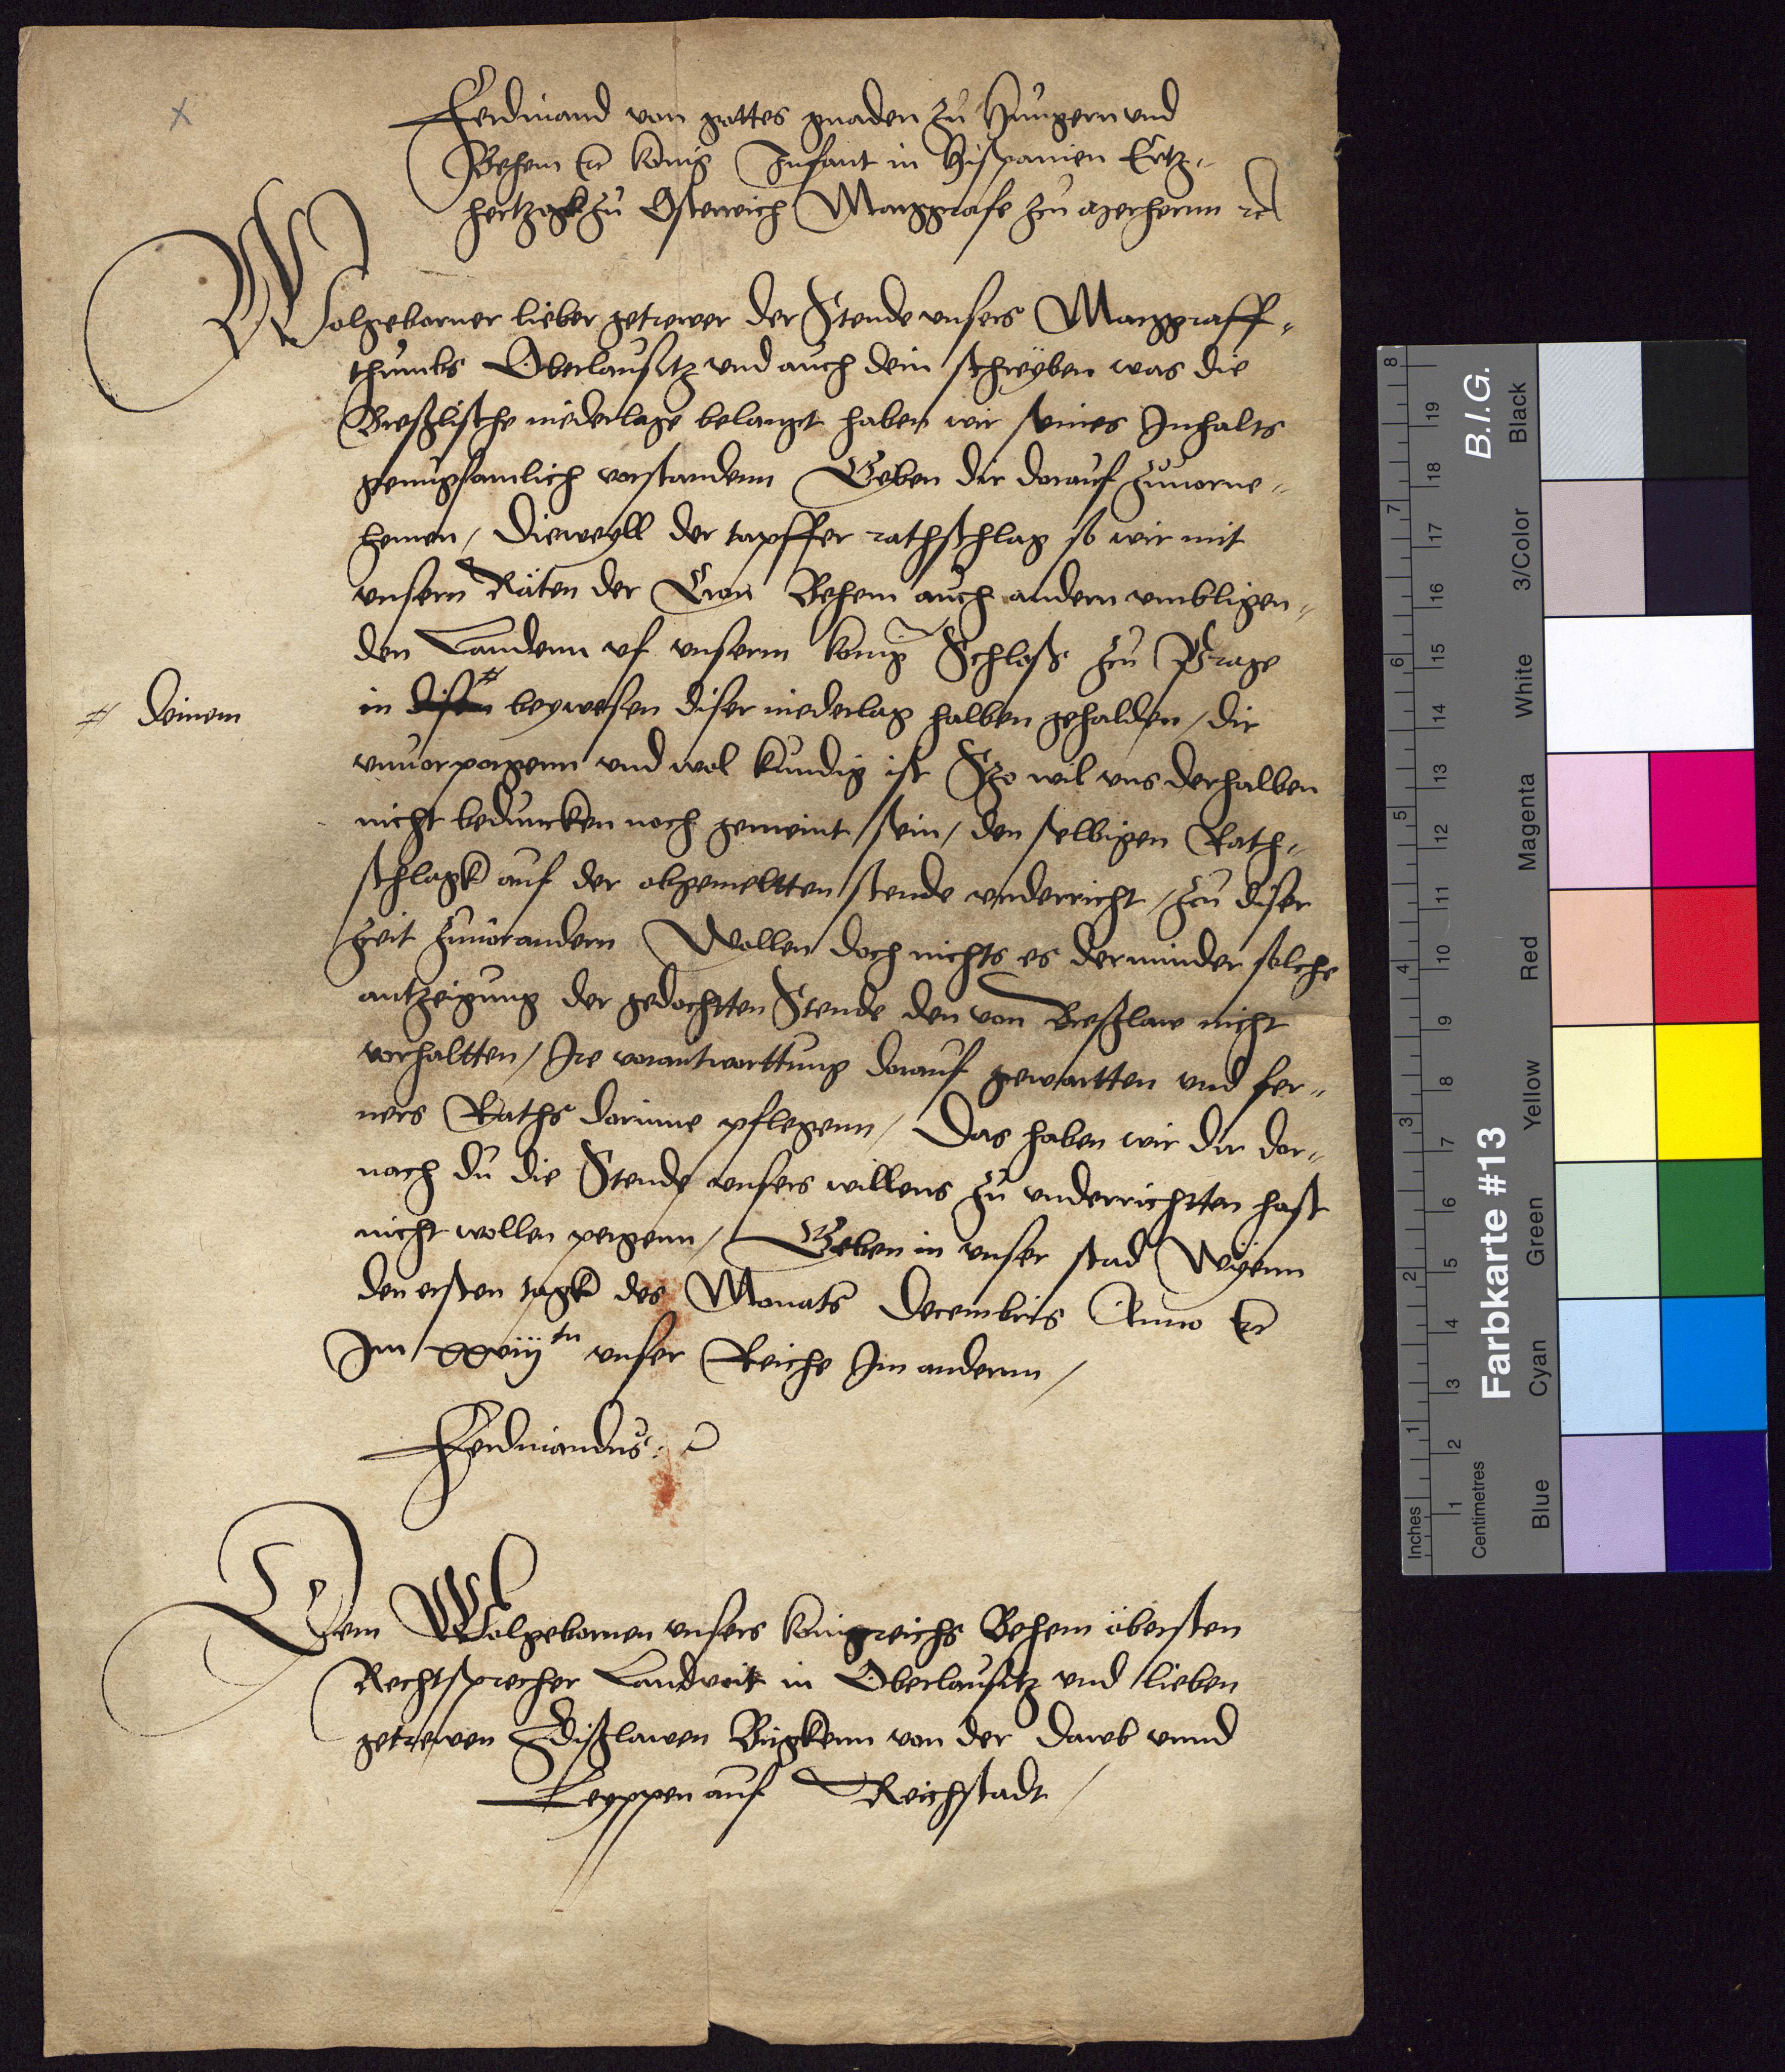 Ferdinand von gottes gnaden zu Hungern und
Behem etc konig Infant in Hispanien Ertz-
hertzogk zu Osterreich Marggrafe zu Merhernn etc
Wolgeborner lieber getrewer der Stende unsers Marggraff-
thumbs Oberlausitz und auch dein schreyben was die
Breßlische niderlage belangt haben wir seines Inhalts
genugsamlich vorstandenn Geben dir darauf zuuorne-
hemen / Dieweyll der tapffer rathschlag so wir mit
unsern Räten der Cron Behem auch andern umbligen-
den Landenn uf unserm konig Schloß zu Prage
in beywesen diser niederlag halben gehalden / dir
# deinem
unuorporgenn und wol kundig ist Szo wil uns derhalben
nicht beduncken noch gemeint sein / den selbigen Rath-
schlagk auf der obgemeltten stende underricht / zu diser
zeit zuuorandern Wollen doch nichts es derminder solche
antzeigung der gedochtten Stende den von Breßlaw nicht
vorhaltten / Ire vorantworttung darauf gewartten und fer-
ners Raths dorinne pflegenn / Das haben wir dir dar-
nach du die Stende unsers willens zu underrichtten hast
nicht wollen pergenn / Geben in unser stad Wyenn
den ersten tagk des Monats Decembris Anno etc
Im xxviij tn unser Reiche Im andernn /
Ferdinandus
Dem Wolgebornen unsers konigreichs Behem obersten
Rechtsprecher Landvoit in Oberlausitz und lieben
getrewen Zdißlawen Birgkenn von der Dawb unnd
Leyppen auf Reichstadt /
B.I.G.
Farbkarte #13
Inches 1 2 3 4 5 6 7 8
Centimetres 1 2 3 4 5 6 7 8 9 10 11 12 13 14 15 16 17 18 19
Blue Cyan Green Yellow Red Magenta White 3/Color Black